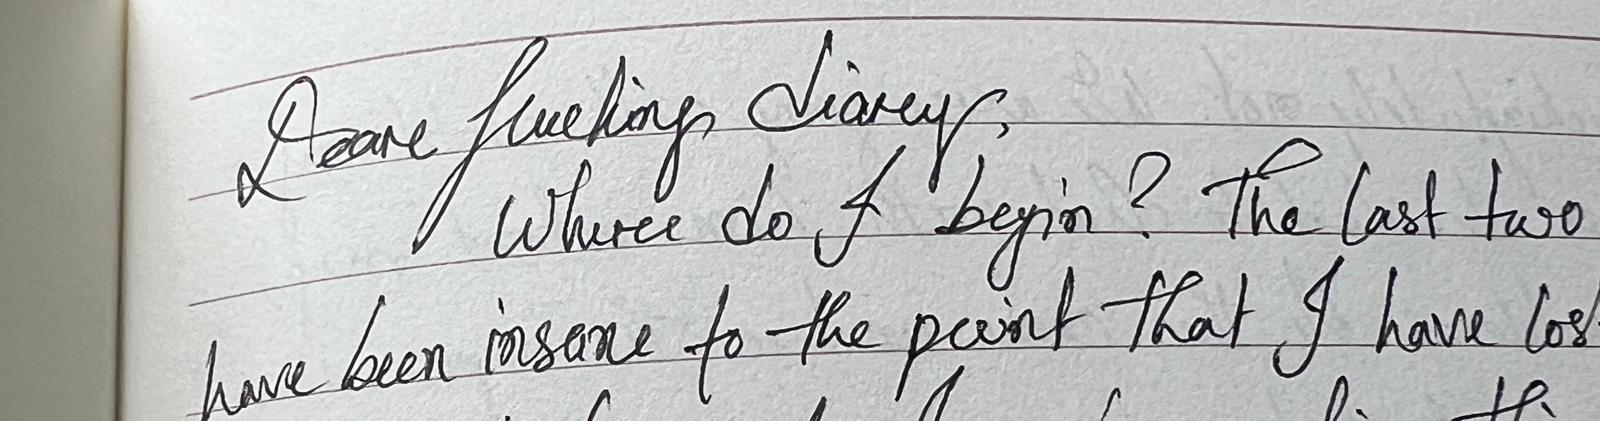 Dear fucking diary,
Where do I begin? The last two
have been insane to the point that I have los